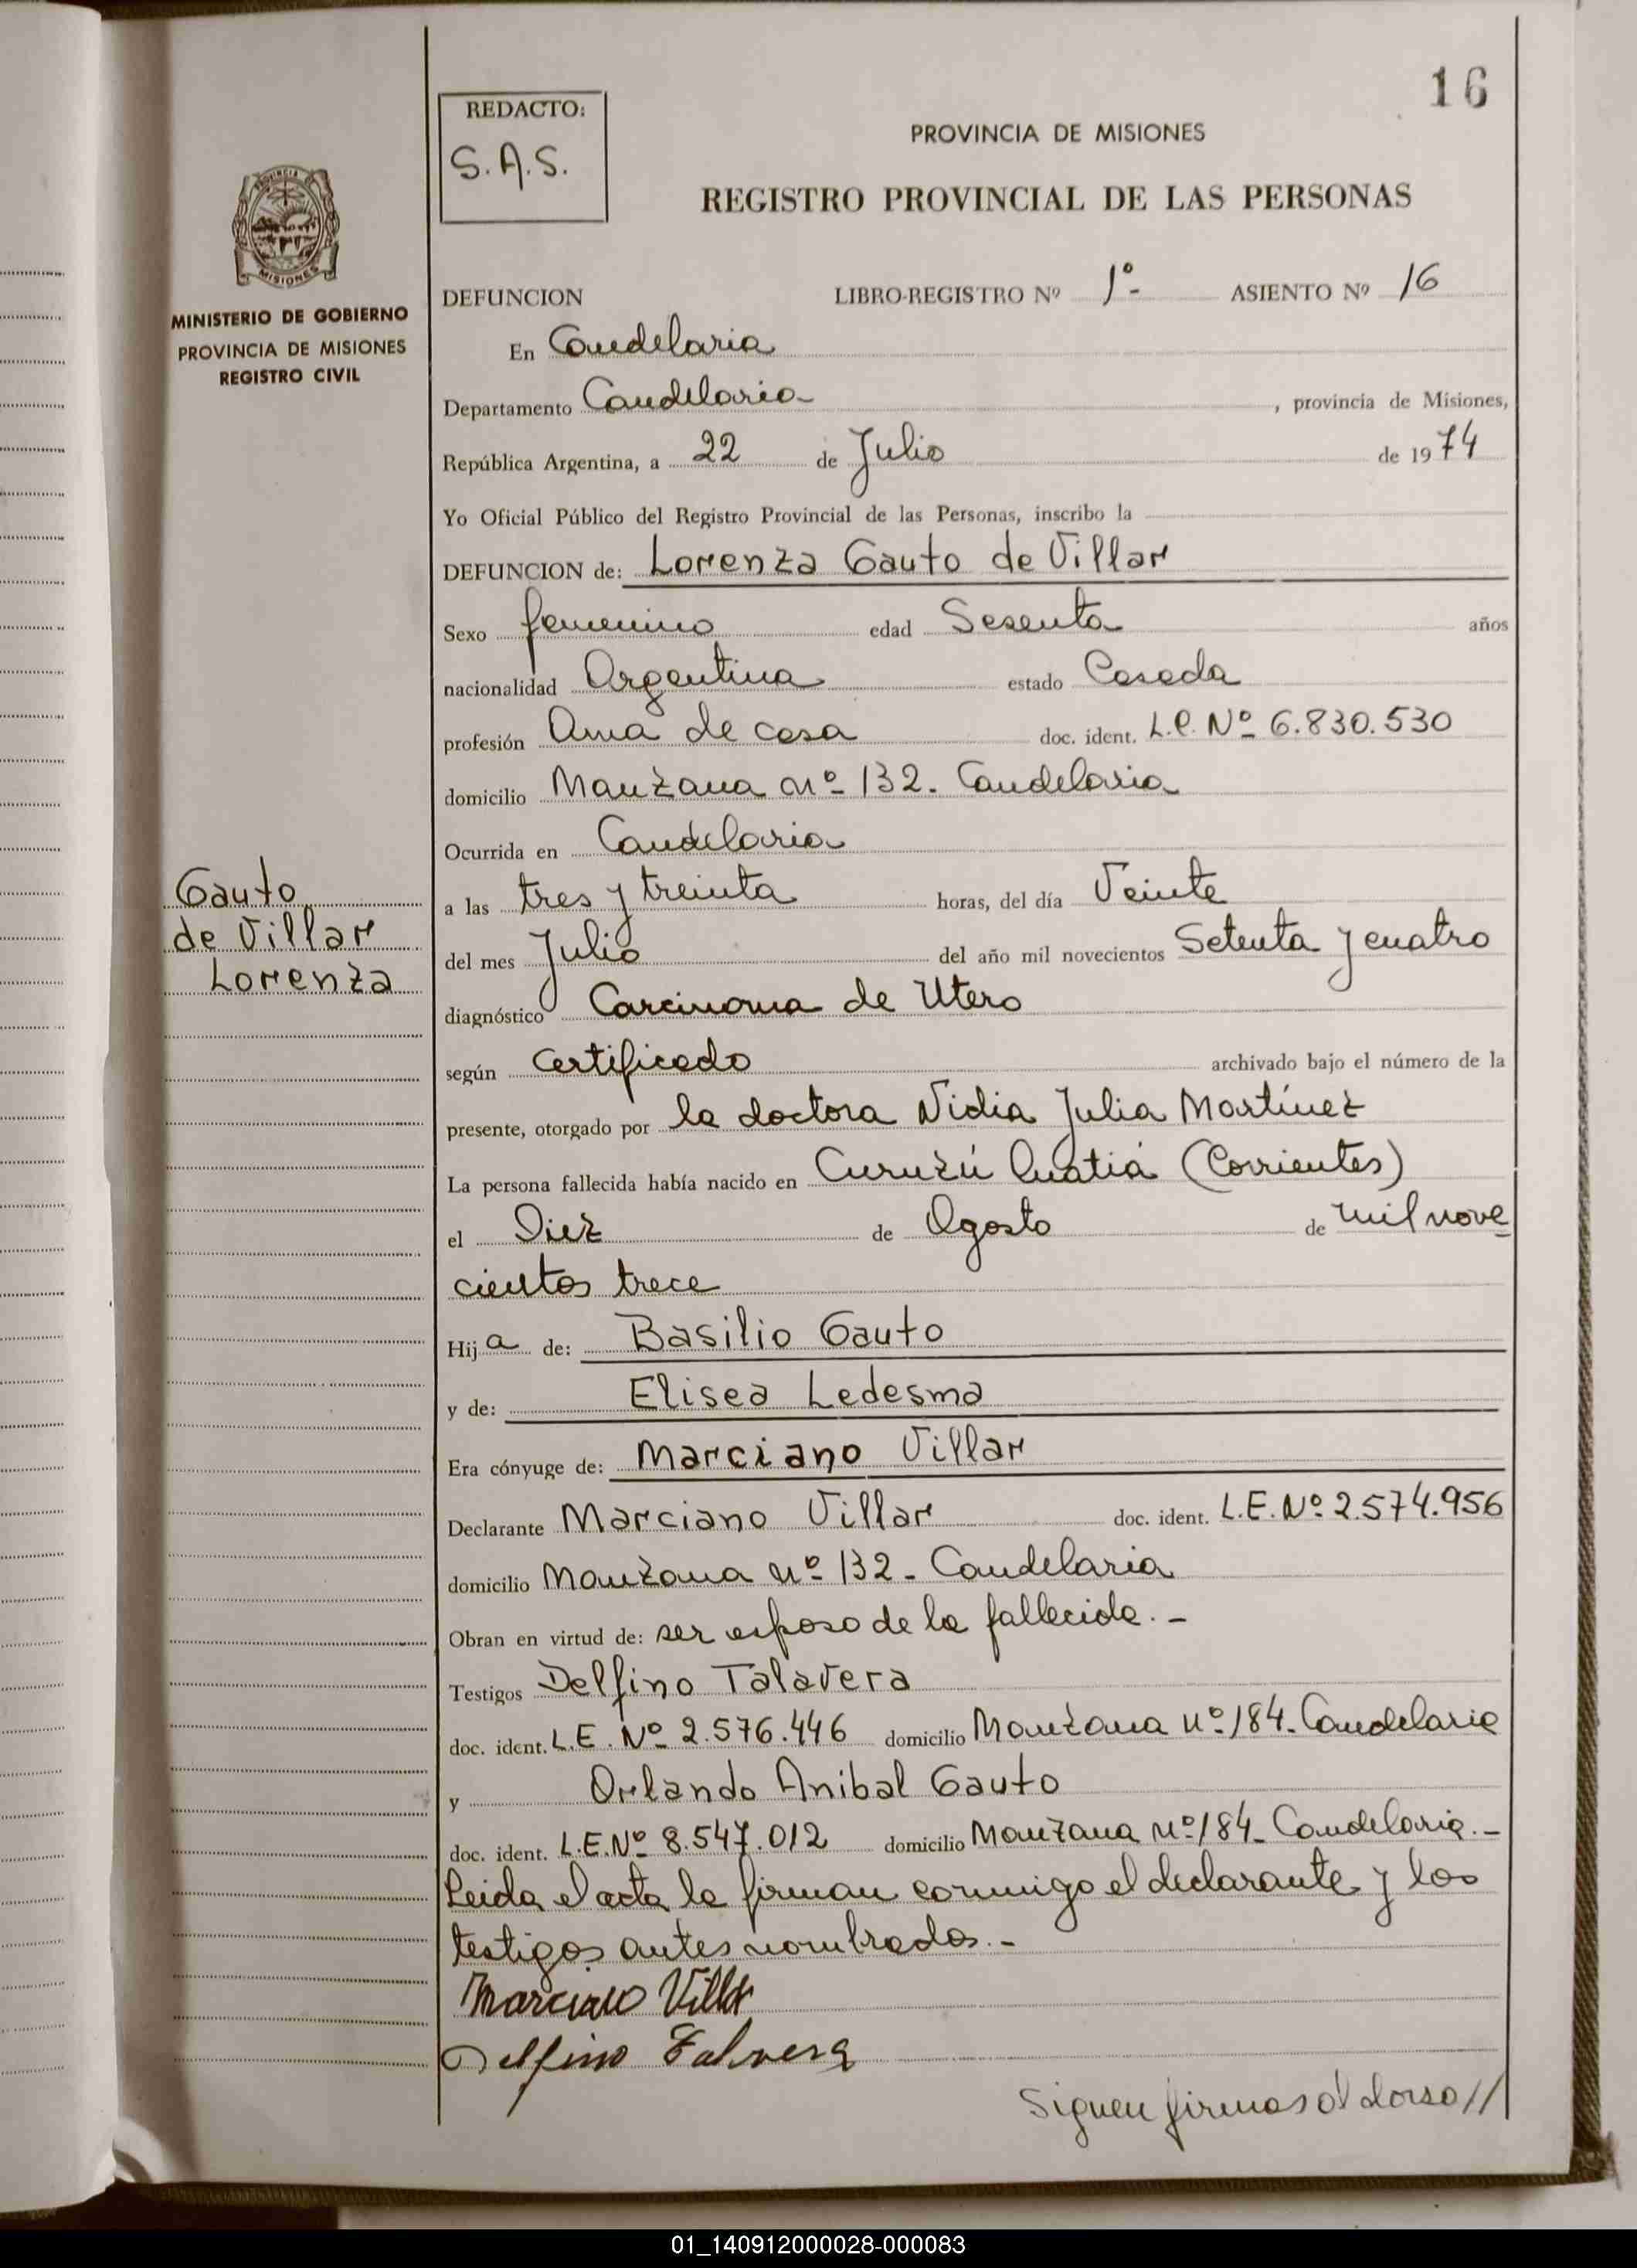 16
REDACTO:
S.A.S.
PROVINCIA DE MISIONES
REGISTRO PROVINCIAL DE LAS PERSONAS
PROVINCIA DE
MISIONES
MINISTERIO DE GOBIERNO
PROVINCIA DE MISIONES
REGISTRO CIVIL
DEFUNCION LIBRO-REGISTRO Nº 1º- ASIENTO Nº 16
En Candelaria
Departamento Candelaria, provincia de Misiones,
República Argentina, a 22 de Julio de 1974
Yo Oficial Público del Registro Provincial de las Personas, inscribo la
DEFUNCION de: Lorenza Gauto de Villar
Sexo femenino edad Sesenta años
nacionalidad Argentina estado Casada
profesión Ama de casa doc. ident. L.C. Nº 6.830.530
domicilio Manzana nº 132. Candelaria
Ocurrida en Candelaria
Gauto
de Villar
Lorenza
a las tres y treinta horas, del día Veinte
del mes Julio del año mil novecientos Setenta y cuatro
diagnóstico Carcinoma de Utero
según Certificado archivado bajo el número de la
presente, otorgado por la doctora Nidia Julia Martínez
La persona fallecida había nacido en Curuzú Cuatiá (Corrientes)
el Diez de Agosto de mil nove
cientos trece
Hija de: Basilio Gauto
y de: Elisea Ledesma
Era cónyuge de: Marciano Villar
Declarante Marciano Villar doc. ident. L.E. Nº 2.574.956
domicilio Manzana nº 132 - Candelaria
Obran en virtud de: ser esposo de la fallecida. -
Testigos Delfino Talavera
doc. ident. L.E. Nº 2.576.446 domicilio Manzana nº 184. Candelaria
y Orlando Anibal Gauto
doc. ident. L.E. Nº 8.547.012 domicilio Manzana nº 184. Candelaria. -
Leida el acta la firman conmigo el declarante y los
testigos antes nombrados. -
Marciano Villar
Delfino Talavera
Siguen firmas al dorso //
01_140912000028-000083